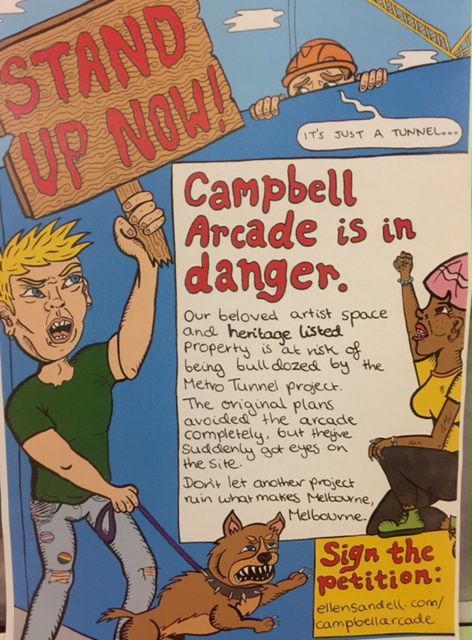 STAND
UP NOW!
IT'S JUST A TUNNEL...
Campbell
Arcade is in
danger.
Our beloved artist space
and heritage listed
property is at risk of
being bulldozed by the
Metro Tunnel project.
The original plans
avoided the arcade
completely, but they've
suddenly got eyes on
the site.
Don't let another project
ruin what makes Melbourne,
Melbourne.
Sign the
petition:
ellensandell.com/
campbellarcade